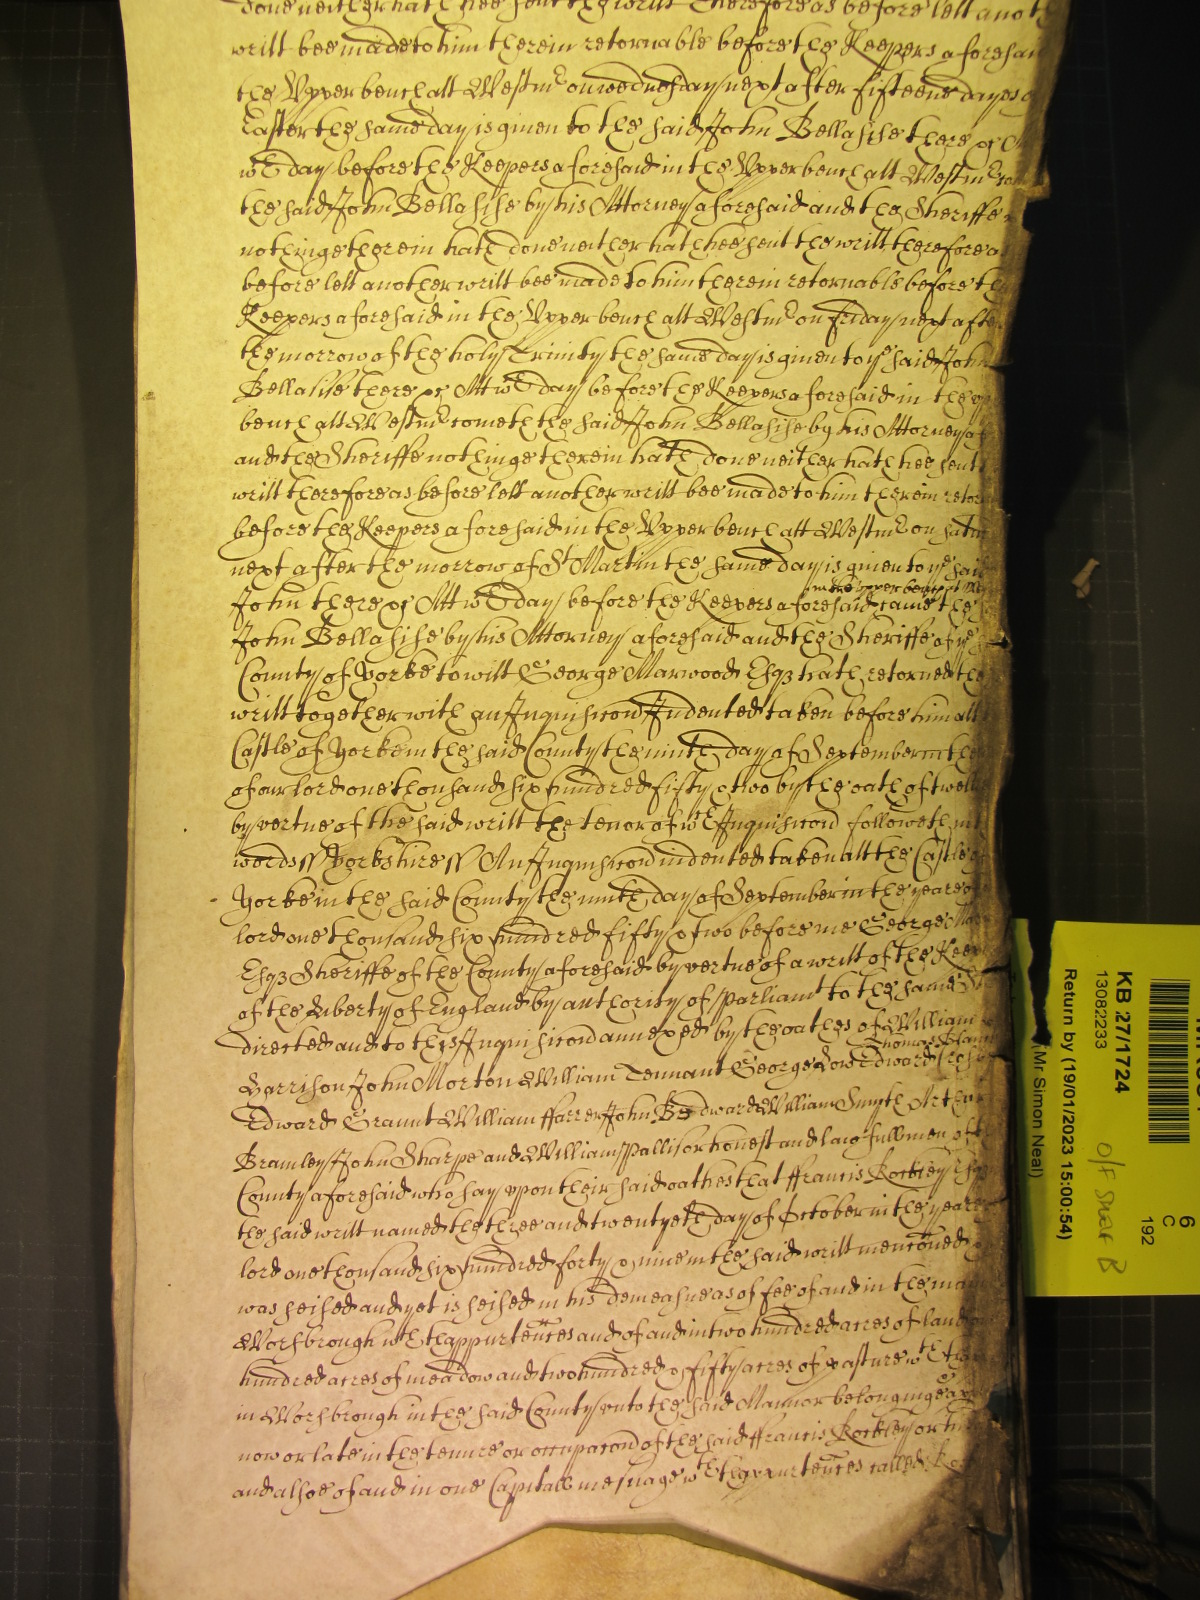 done neither hath hee sent the writt Therefore as before lett anoth
writt bee made to him therein retornable before the Keepers aforesaid
the Vpper bench att Westmr on wednesday next after fifteene dayes of
Easter the same day is giuen to the said John Bellasise there &c Att
wch day before the Keepers aforesaid in the Vpper bench att Westmr
the said John Bellasise by his Attorney aforesaid and the Sheriffe
nothinge therein hath done neither hath hee sent the writt therefore as
before lett another writt bee made to him therein retornable before the
Keepers aforesaid in the Vpper bench att Westmr on Friday next after
the morrow of the holy Trinity the same day is giuen to ye said John
Bellasise there &c Att wch day before the Keepers aforesaid in the
bench att Westmr cometh the said John Bellasise by his Attorney
and the Sheriffe nothinge therein hath done neither hath hee sent
writt therefore as before lett another writt bee made to him therein
before the Keepers aforesaid in the Vpper bench att Westmr on
next after the morrow of St Martin the same day is giuen to ye said
in the vpper bench att
John there &c Att wch day before the Keepers aforesaid came the
John Bellasise by his Attorney aforesaid and the Sheriffe of ye
County of Yorke to witt George Marwood Esqz hath retorned the
writt together with an Inquisicon Indented taken before him att
Castle of Yorke in the said County the ninth day of September in the
of our lord one thousand six hundred fifty & two by the oath of twelve
by vertue of the said writt the tenor of wch Inquisicon followeth in
words ss Yorkshire ss An Inquisicon indented taken att the Castle of
Yorke in the said County the ninth day of September in the yeare of
lord one thousand six hundred fifty & two before me George
Esqz Sheriffe of the County aforesaid by vertue of a writt of the
of the Liberty of England by authority of Parliamt to the same
directed and to this Inquisicon annexed by the oathes of William
Thomas
Garrison John Morton William Tennant George Edward
Edward Graunt William ffarrer John William Smyth
Bramley John Sharpe and William Pallisor honest and lawfull men of
County aforesaid who say vpon their said oathes that ffrancis Rockley
the said writt named the three and twentyeth day of October in the yeare
lord one thousand six hundred forty & nine in the said writt menconed
was seised and yet is seised in his demeasne as of fee of and in the
Worsbrough wth thappurtences and of and in two hundred acres of land
hundred acres of meadow and two hundred & fifty acres of pasture wth
in Worsbrough in the said County vnto the said Mannor belonginge
now or late in the tenure or occupacon of the said ffrancis Rockley or
and alsoe of and in one Capitall mesuage wth thappurtences called
KB 27/1724
13082233
Return by (19/01/2023 15:00:54)
(Mr Simon Neal)
6
C
192
O/F Shelf B